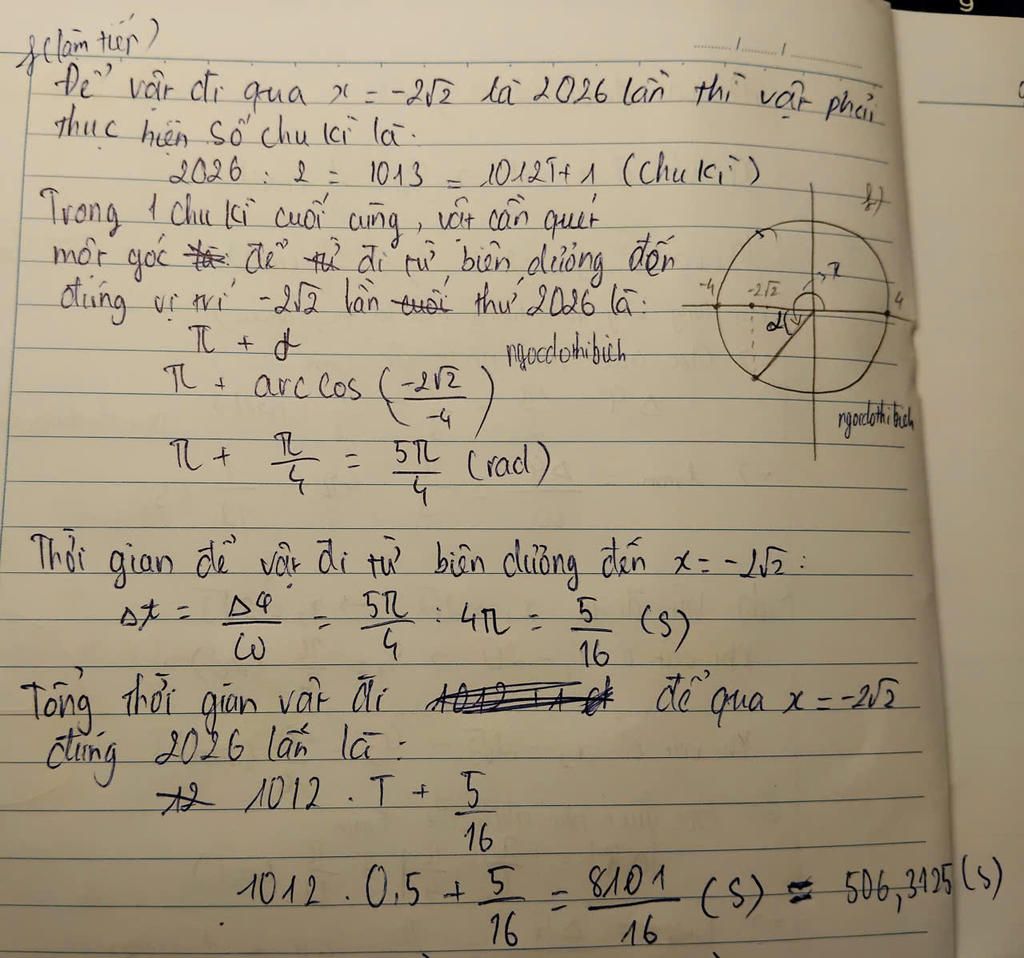 f(làm tiếp)
Để vật đi qua x = -2√2 là 2026 lần thì vật phải
thực hiện số chu kì là:
2026 : 2 = 1013 = 1012T + 1 (chu kì)
Trong 1 chu kì cuối cùng, vật cần quét
một góc để đi từ biên dương đến
đúng vị trí -2√2 lần thứ 2026 là:
π + α
π + arc cos (-2√2/-4)
π + π/4 = 5π/4 (rad)
ngocdothibich
f)
π
-4 -2√2 4
α
ngocdothibich
Thời gian để vật đi từ biên dương đến x = -2√2:
Δt = Δφ/ω = 5π/4 : 4π = 5/16 (s)
Tổng thời gian vật đi để qua x = -2√2
đúng 2026 lần là:
1012 . T + 5/16
1012 . 0,5 + 5/16 = 8101/16 (s) ≈ 506,3125 (s)